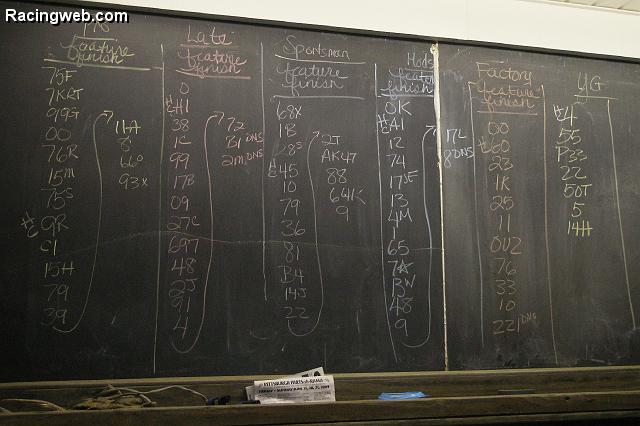 Racingweb.com
feature
finish
75F
7KRT
99G
00
76R
15M
75S
9R
C1
15H
79
39
11A
8
66
93X
Late
feature
finish
0
H1
38
1C
99
17B
09
27C
697
48
2J
91
4
72
B1 DNS
2M DNS
Sportsmen
feature
finish
68X
1B
28S
45
10
79
36
81
B4
14J
22
2T
AK47
88
641K
9
Mods
feature
finish
0K
A1
12
74
175F
13
4M
1
65
7A
BW
48
9
17L
8 DNS
Factory
feature
finish
00
60
23
1K
25
11
0U2
76
33
10
22 DNS
YG
4
55
P33
22
50T
5
14H
PITTSBURGH PARTS-A-RAMA